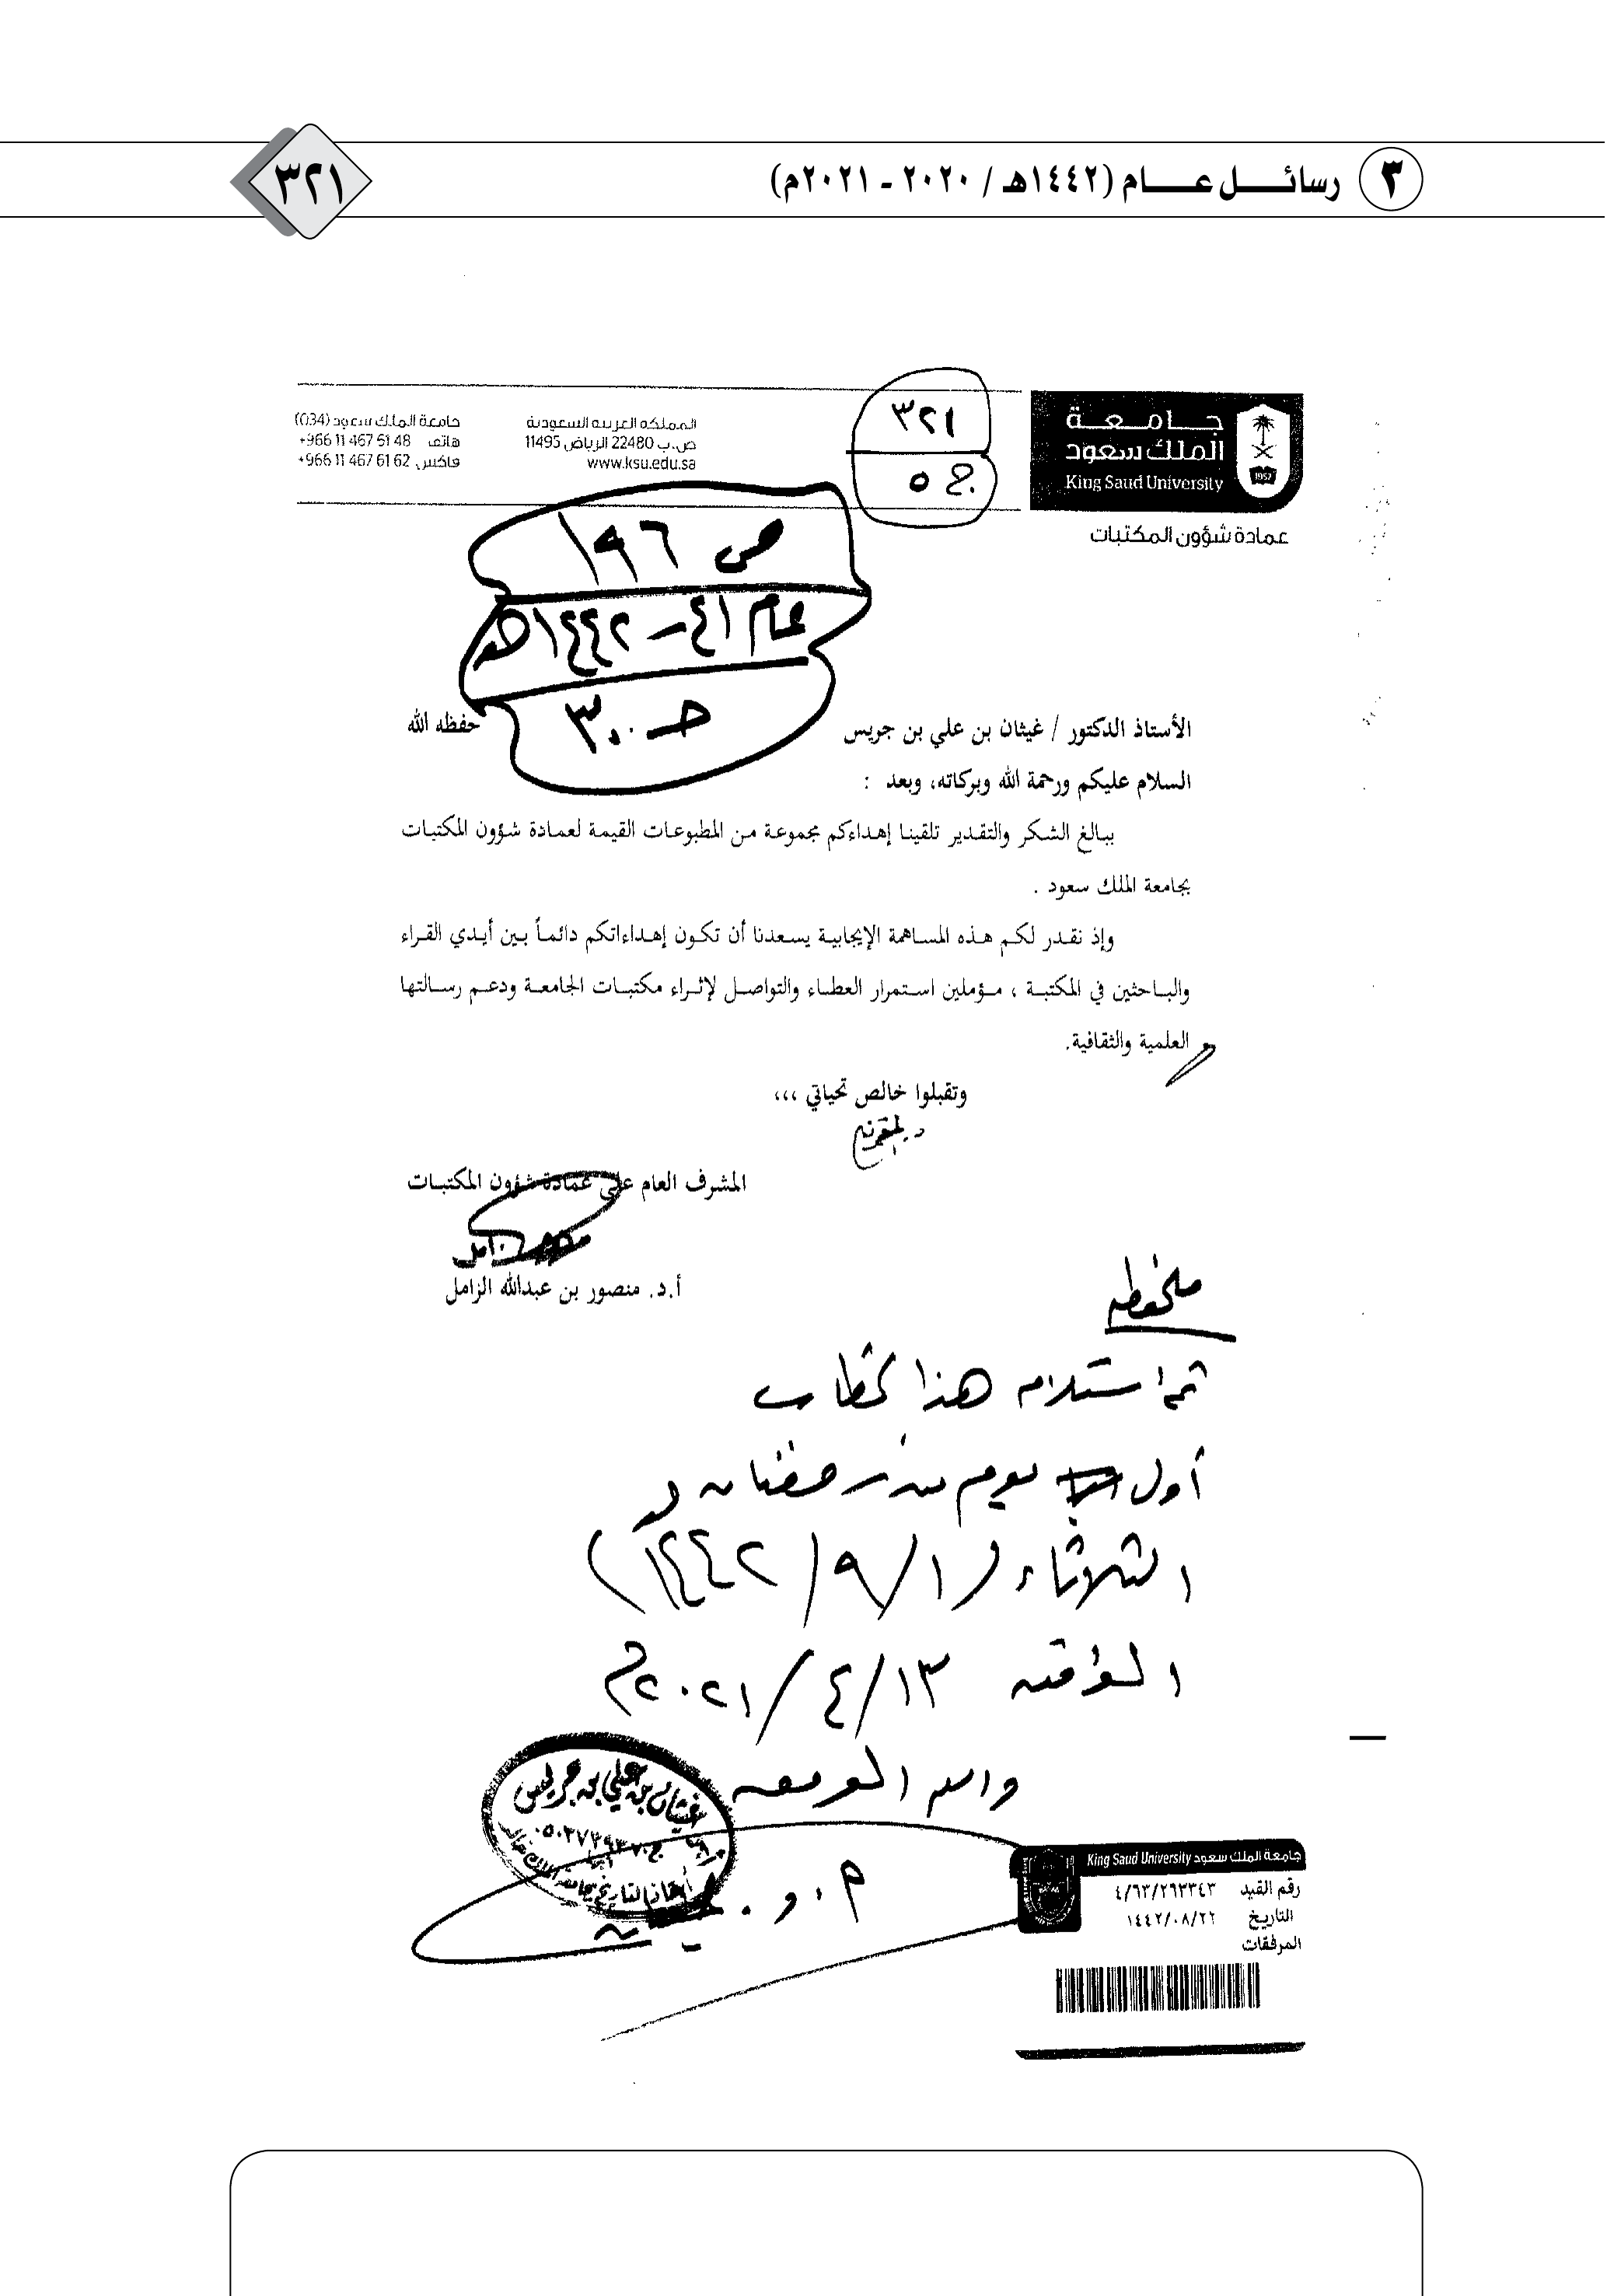 ٣ رسائــــل عــــام (١٤٤٢هـ / ٢٠٢٠ - ٢٠٢١م)
٣٢١
جامعة
الملك سعود
King Saud University
1957
عمادة شؤون المكتبات
٣٢١
ج ٥
المملكة العربية السعودية
ص.ب 22480 الرياض 11495
www.ksu.edu.sa
جامعة الملك سعود (034)
هاتف +966 11 467 61 48
فاكس +966 11 467 61 62
ص ١٩٦
عام ٤١ - ١٤٤٢هـ
الأستاذ الدكتور / غيثان بن علي بن جريس حفظه الله
السلام عليكم ورحمة الله وبركاته، وبعد :
ببالغ الشكر والتقدير تلقينا إهداءكم مجموعة من المطبوعات القيمة لعمادة شؤون المكتبات
بجامعة الملك سعود .
وإذ نقدر لكم هذه المساهمة الإيجابية يسعدنا أن تكون إهداءاتكم دائماً بين أيدي القراء
والباحثين في المكتبة ، مؤملين استمرار العطاء والتواصل لإثراء مكتبات الجامعة ودعم رسالتها
العلمية والثقافية.
وتقبلوا خالص تحياتي ،،،
المشرف العام على عمادة شؤون المكتبات
أ.د. منصور بن عبدالله الزامل
ملحوظه
تم استلام هذا الخطاب
أول يوم من رمضان
الثلاثاء (١/٩/١٤٤٢)
الموافق ١٣/٤/٢٠٢١م
والله الموفق
غيثان بن علي بن جريس
جامعة الملك سعود King Saud University
رقم القيد ٤/٦٣/٢٦٣٣٤٣
التاريخ ١٤٤٢/٠٨/٢٢
المرفقات